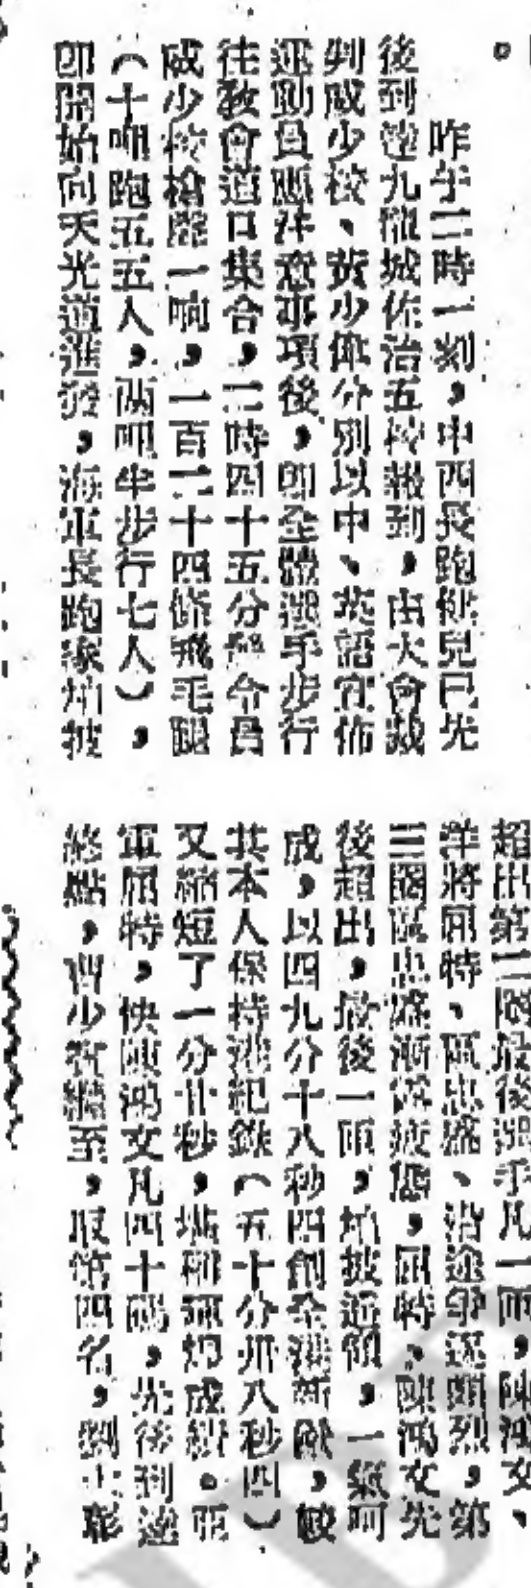 昨午二時一刻,中西長跑健兒已先
後到達九龍城佐治五校報到,由大會裁
判威少校、黃少偉分別以中、英語宣佈
運動員應注意事項後,即全體選手步行
往教會道口集合,二時四十五分發令員
威少校槍聲一响,一百二十四條飛毛腿
(十哩跑五五人,兩哩半步行七人),
即開始向天光道進發,海軍長跑家柏披
超出第二隊最後選手凡一兩,陳鴻文、
洋將屈特、區忠盛、沿途爭逐頗烈,第
三圈區忠盛漸露疲態,屈特、陳鴻文先
後超出,最後一兩,柏披近領,一氣呵
成,以四九分十八秒四創全港新猷,較
其本人保持港紀錄(五十分卅八秒四)
又縮短了一分廿秒,堪稱 成績。亞
軍屈特,快陳鴻文凡四十碼,先後到達
終點,曹少 繼至,取第四名,劉